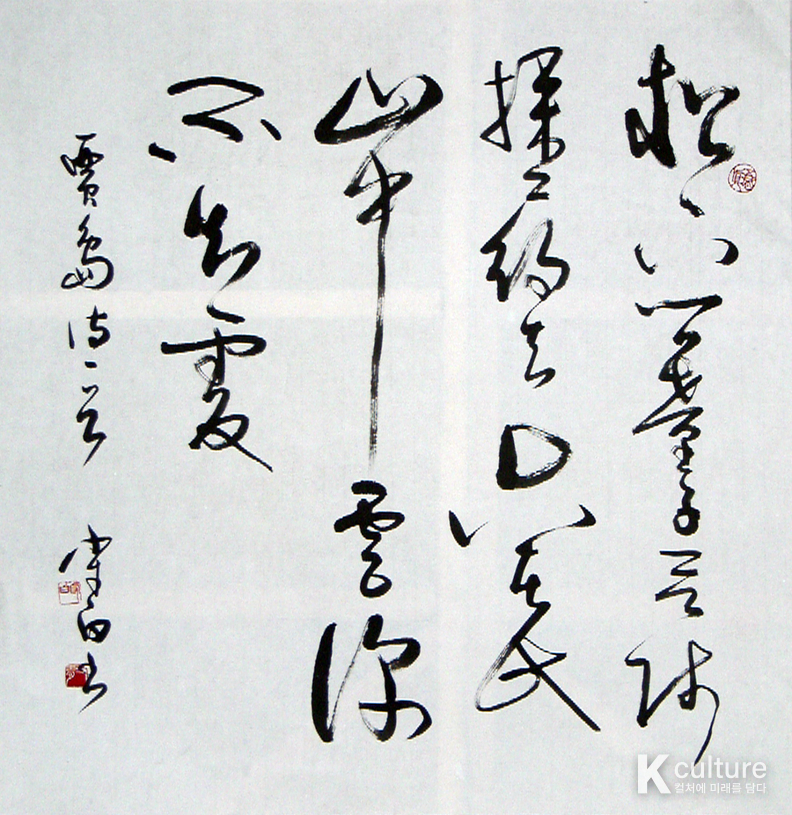 松下問童子言師
採藥去只在此
山中雲深
不知處
賈島詩一首 白書
K culture
컬처에 미래를 담다